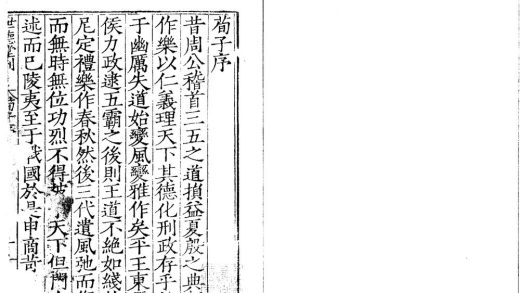 荀子序
昔周公稽首三五之道損益夏殷之典
作樂以仁義理天下其德化刑政存乎
于幽厲失道始變風變雅作矣平王東
侯力政逮五霸之後則王道不絕如綫
尼定禮樂作春秋然後三代遺風弛而
而無時無位功烈不得天下但門
述而已陵夷至于戰國於是申商苛